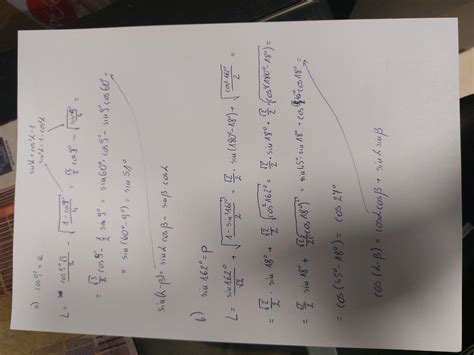 a) cos 9° = α
sin²α + cos²α = 1
sin²α - cos²α
L = cos 9°√3/2 - √(1 - cos²9°/4) = √3/2 cos 9° - √(sin²9°/4) =
= √3/2 cos 9° - 1/2 sin 9° = sin 60° · cos 9° - sin 9° cos 60° =
= sin (60° - 9°) = sin 51°
sin(α-β) = sin α · cos β - sin β · cos α
b) sin 162° = p
L = sin 162°/√2 + √(1 - sin²162°/2) = √2/2 · sin (180° - 18°) + √(cos²162°/2) =
= √2/2 · sin 18° + √2/2 √(cos²162°) = √2/2 · sin 18° + √2/2 (cos(180° - 18°)) =
= √2/2 sin 18° + √2/2 (cos 18°) = sin 45° · sin 18° + cos 45° cos 18° =
= cos (45° - 18°) = cos 27°
cos (α - β) = cos α cos β + sin α sin β